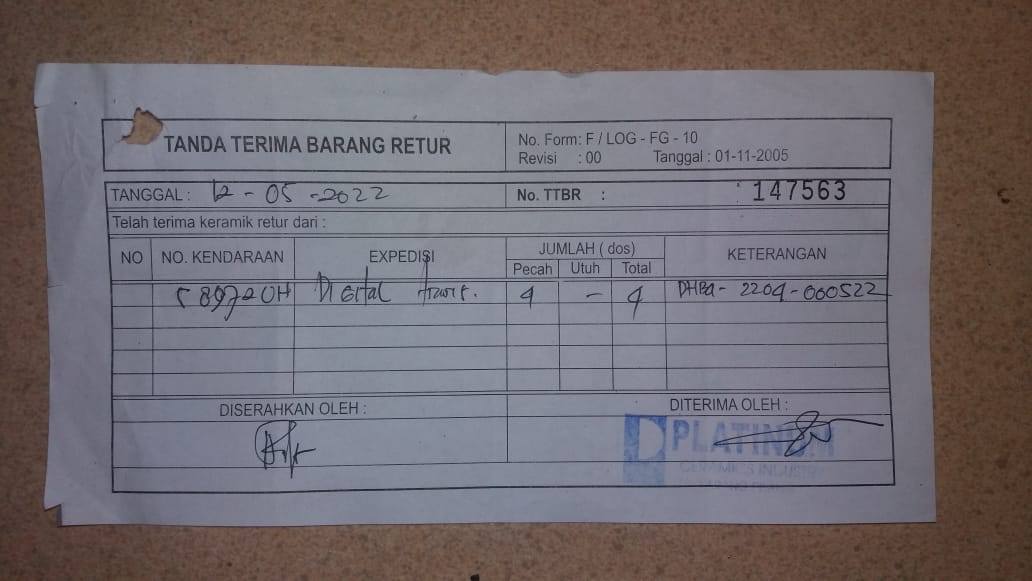 TANDA TERIMA BARANG RETUR
No. Form: F / LOG - FG - 10
Revisi : 00 Tanggal : 01-11-2005
TANGGAL : 12 - 05 - 2022 No. TTBR : 147563
Telah terima keramik retur dari :
NO NO. KENDARAAN EXPEDISI JUMLAH ( dos) KETERANGAN
Pecah Utuh Total
8972 UH Digital 4 - 4 DHBa - 2204 - 000522
DISERAHKAN OLEH : DITERIMA OLEH :
PLATINUM
CERAMICS INDUSTRY